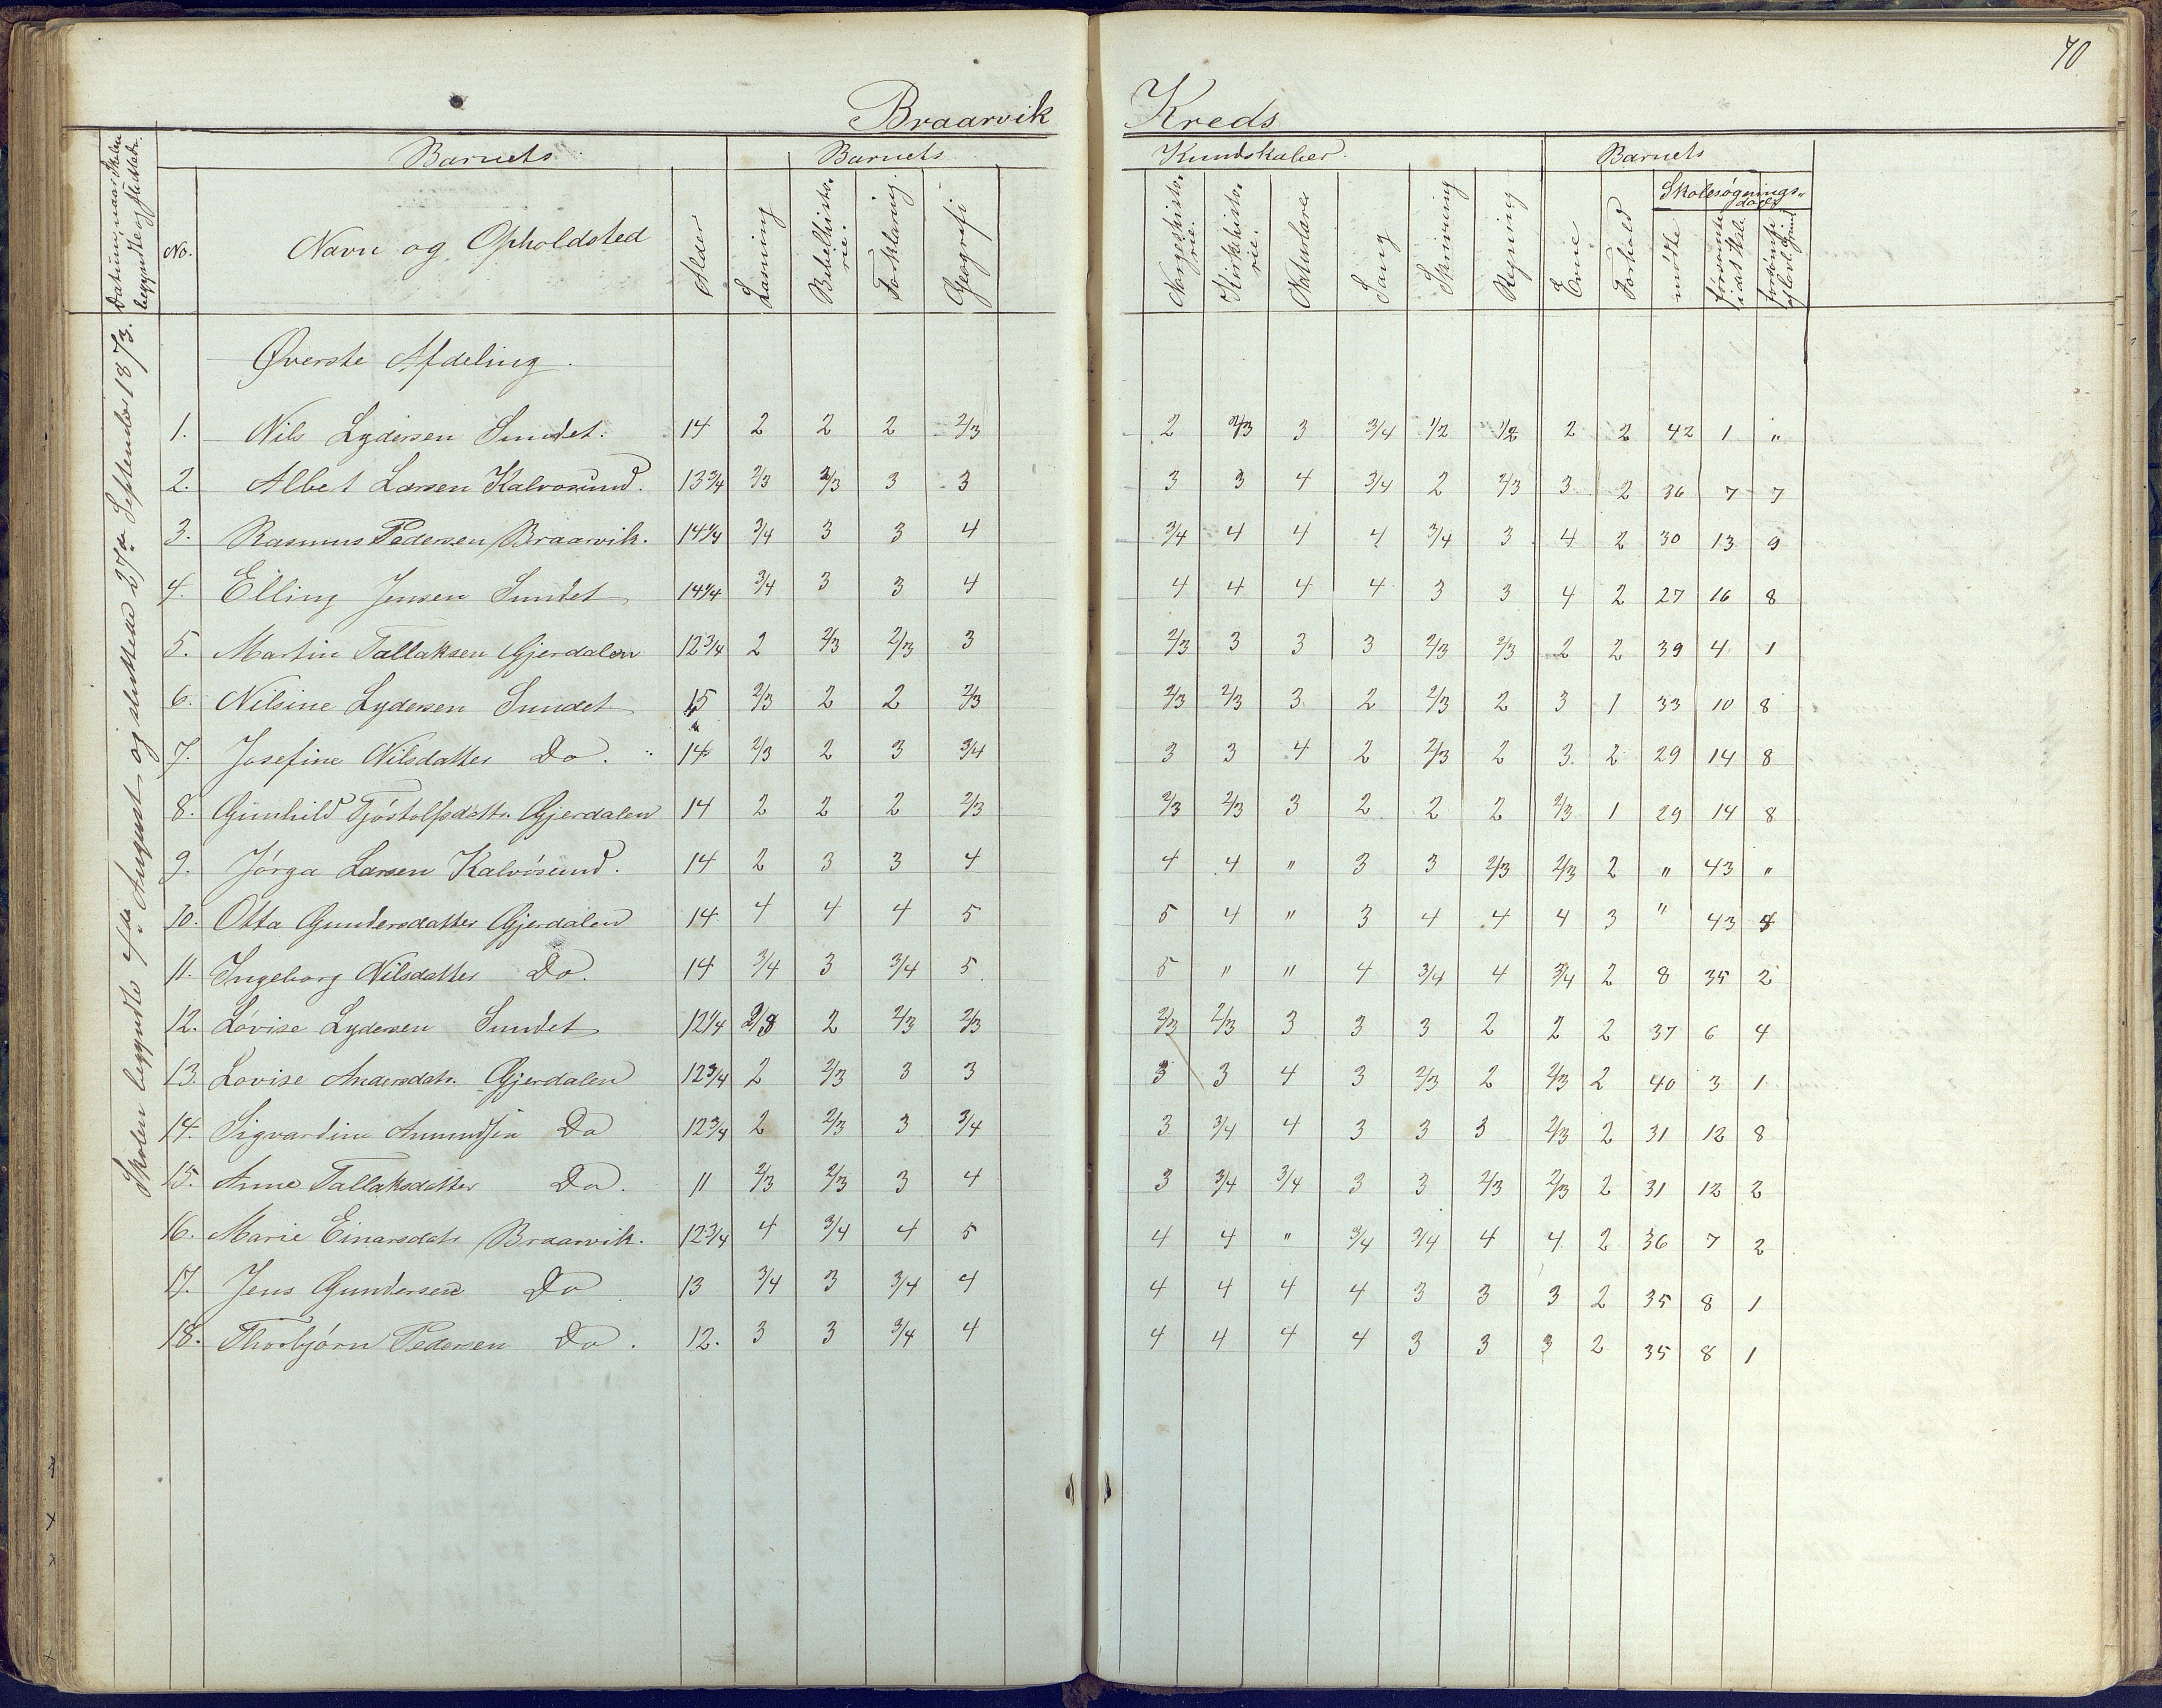 70
Braarvik Kreds
Datum, naar Skolen begyndte og sluttede.
Barnets Barnets Kundskaber. Barnets
No. Navn og Opholdsted Alder Læsning Bibelhistorie. Forklaring. Geografi Norgeshistorie. Kirkehistorie. Naturlære Sang Skrivning Regning Evne Forhold Skolesøgningsdage
mödte forsømte i det Hele forsømte af lovl. Grund
Skolen begyndte 4de August og sluttede 27de September 1873.
Øverste Afdeling.
1. Nils Lydersen Sundet. 14 2 2 2 2/3 2 2/3 3 3/4 1/2 1/2 2 2 42 1 "
2. Albert Larsen Kalvøsund. 13 3/4 2/3 2/3 3 3 3 3 4 3/4 2 2/3 3 2 36 7 7
3. Rasmus Pedersen Braarvik. 14 1/4 3/4 3 3 4 3/4 4 4 4 3/4 3 4 2 30 13 9
4. Elling Jensen Sundet 14 1/4 3/4 3 3 4 4 4 4 4 3 3 4 2 27 16 8
5. Martin Tallaksen Gjerdalen 12 3/4 2 2/3 2/3 3 2/3 3 3 3 2/3 2/3 2 2 39 4 1
6. Nilsine Lydersen Sundet 15 2/3 2 2 2/3 2/3 2/3 3 2 2/3 2 3 1 33 10 8
7. Josefine Nilsdatter Do. 14 2/3 2 3 3/4 3 3 4 2 2/3 2 3 2 29 14 8
8. Gunhild Tjöstolfsdattr. Gjerdalen 14 2 2 2 2/3 2/3 2/3 3 2 2 2 2/3 1 29 14 8
9. Jörga Larsen Kalvösund. 14 2 3 3 4 4 4 " 3 3 2/3 2/3 2 " 43 "
10. Otta Gundersdatter Gjerdalen 14 4 4 4 5 5 4 " 3 4 4 4 3 " 43
11. Ingeborg Nilsdatter Do. 14 3/4 3 3/4 5 5 " " 4 3/4 4 3/4 2 8 35 2
12. Lovise Lydersen Sundet 12 1/4 2/3 2 2/3 2/3 2/3 2/3 3 3 3 2 2 2 37 6 4
13. Lovise Andersdatr. Gjerdalen 12 3/4 2 2/3 3 3 3 3 4 3 2/3 2 2/3 2 40 3 1
14. Sigvardine Amundsen Do 12 3/4 2 2/3 3 3/4 3 3/4 4 3 3 3 2/3 2 31 12 8
15. Anne Tallaksdatter Do. 11 2/3 2/3 3 4 3 3/4 3/4 3 3 2/3 2/3 2 31 12 2
16. Marie Einarsdatr Braarvik. 12 3/4 4 3/4 4 5 4 4 " 3/4 3/4 4 4 2 36 7 2
17. Jens Gundersen Do 13 3/4 3 3/4 4 4 4 4 4 3 3 3 2 35 8 1
18. Thorbjörn Pedersen Do. 12. 3 3 3/4 4 4 4 4 4 3 3 3 2 35 8 1